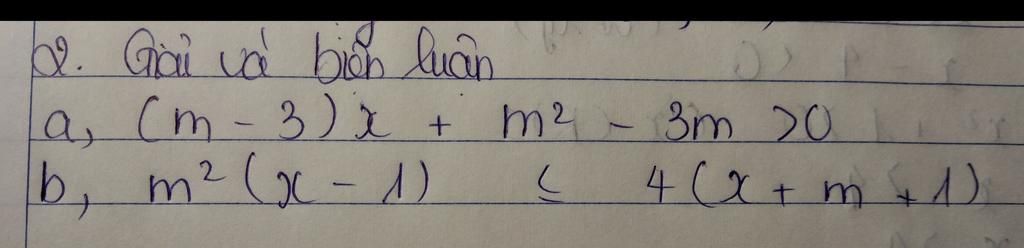 2. Giải và biện luận
a, (m - 3)x + m² - 3m >0
b, m² (x - 1) ≤ 4(x + m + 1)